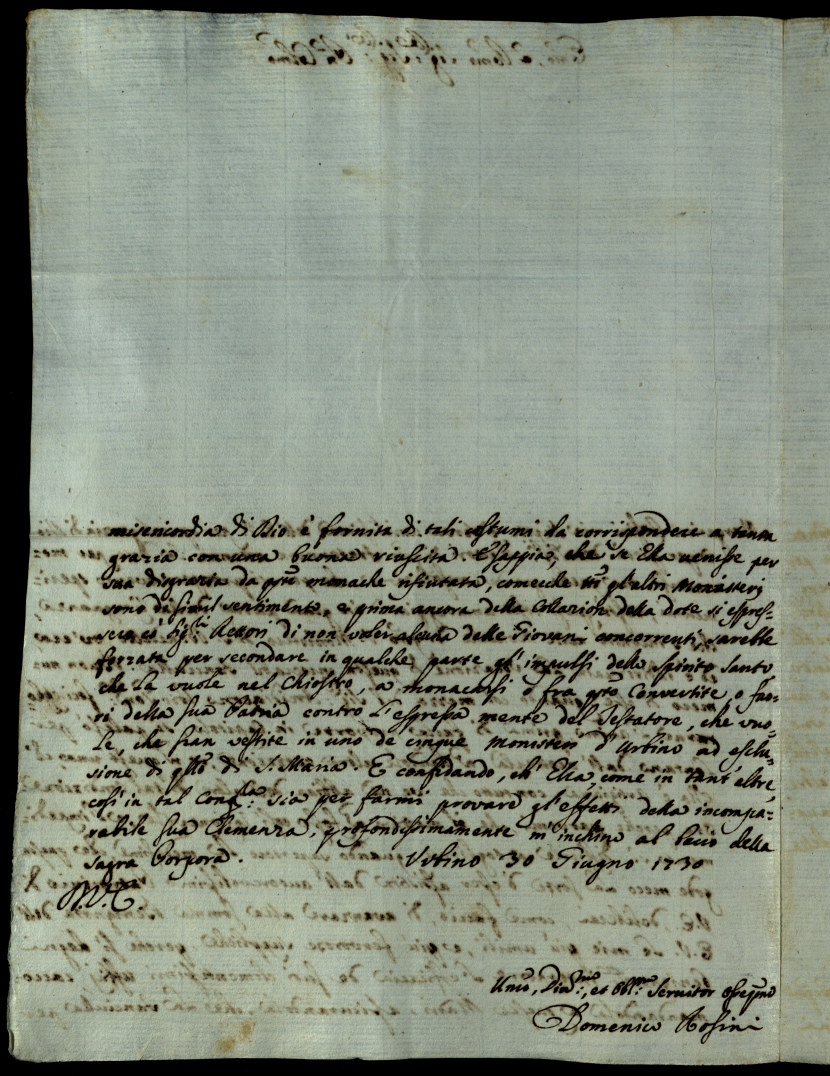 misericordia di Dio è fornita di tali costumi da corrispondere a tanta
grazia con una buona riuscita. E sappia, che se Ella venisse per
sua disgrazia da qste monache rifiutata, comecche tti gl'altri Monasterj
sono di simil sentimento, e prima ancora della Collazion della dote si espres-
sero co' Sigli Rettori di non voler alcuna delle Giovani concorrenti, sarebbe
forzata per secondare in qualche parte gl'impulsi dello Spirito Santo
che la vuole nel Chiostro, a monacarsi o fra qste Convertite, o fuo-
ri della sua Patria contro l'espressa mente del Testatore, che vuo-
le, che sian vestite in uno de cinque Monisteri d'Urbino ad esclu-
sione di qsto di S. Maria. E confidando, ch'Ella, come in tant'altre,
così in tal sia per farmi provare gl'effetti della incompa-
rabile sua Clemenza, profondissimamente m'inchino al bacio della
sagra Porpora. Urbino 30 Giugno 1730
Umo, Divmo, et Obblmo Servitor Ossequmo
Domenico Rosini